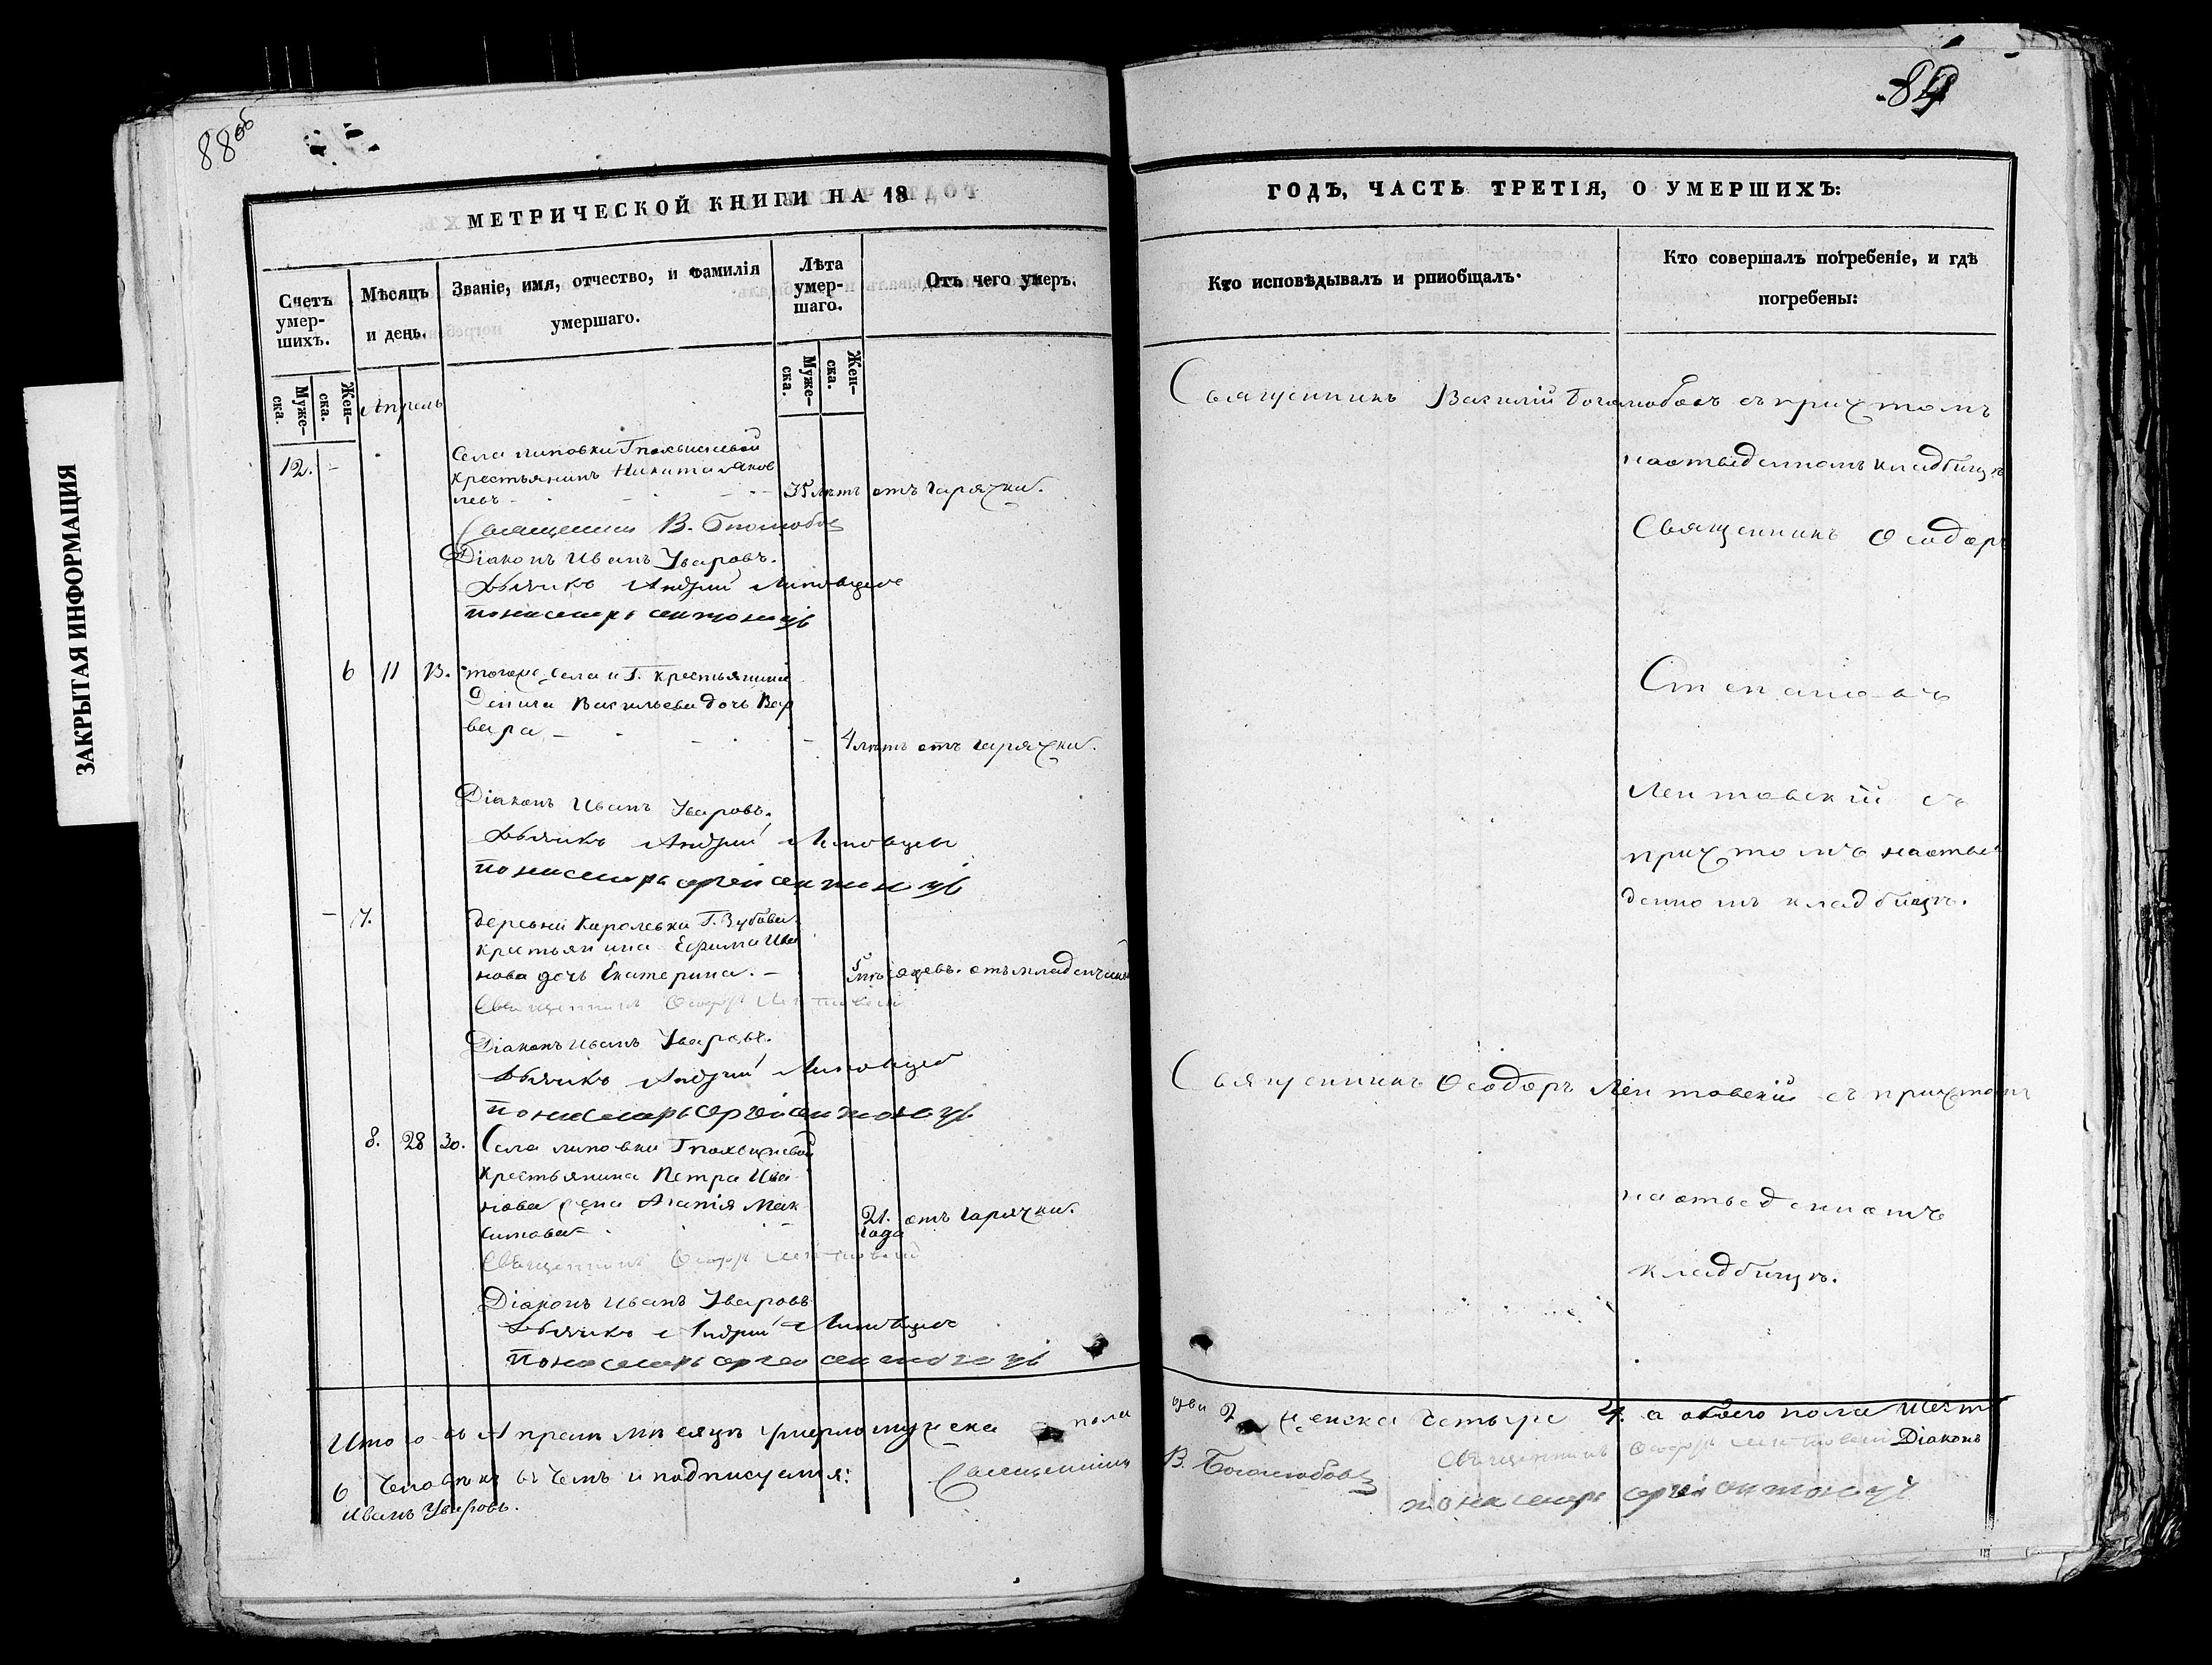 ЗАКРЫТАЯ ИНФОРМАЦИЯ
88об
МЕТРИЧЕСКОЙ КНИГИ НА 18
Счетъ умер-шихъ.
Мѣсяцъ и день.
Званіе, имя, отчество, и Фамилія
умершаго.
Лѣта умер-шаго.
Отъ чего умеръ.
Муже-ска.
Жен-ска.
Муже-ска.
Жен-ска.
Апрель
12. -
Села Липовки
крестьянинъ Никита Яков
левъ - 35 лѣтъ отъ горячки.
Священникъ В. Боголюбовъ
Діаконъ Иванъ Уваровъ.
Дьячикъ Андрей
Пономарь
6 11 13. тогоже села и Г. крестьянина
Дениса Васильева дочь Вар
вара - 4 лѣтъ отъ горячки.
Діаконъ Иванъ Уваровъ.
Дьячикъ Андрей
Пономарь Сергей
- 7. деревни Королевки Г. Зубова
крестьянина Ефима Ива
нова дочь Екатерина. - 5 мѣсяцевъ. отъ младенческой
Священникъ Ѳеодоръ Лентовскій
Діаконъ Иванъ Уваровъ.
Дьячикъ Андрей
Пономарь Сергей
8. 28 30. Села Липовки
крестьянина Петра Ива
нова жена Агапія Мак
симова - 21. года отъ горячки.
Священникъ Ѳеодоръ Лентовскій
Діаконъ Иванъ Уваровъ
Дьячикъ Андрей
Пономарь Сергей
Итого въ Апрелѣ мѣсяцѣ умерло мужеска пола
6 человѣкъ въ чемъ и подписуемся: Священникъ
Иванъ Уваровъ.
89
ГОДЪ, ЧАСТЬ ТРЕТІЯ, О УМЕРШИХЪ:
Кто исповѣдывалъ и рпиобщалъ·
Кто совершалъ погребеніе, и гдѣ
погребены:
Священникъ Василій Боголюбовъ съ причтомъ
на отведенномъ кладбищѣ
Священникъ Ѳеодоръ
Степановъ
Лентовскій съ
причтомъ на отве
денномъ кладбищѣ.
Священникъ Ѳеодоръ Лентовскій съ причтомъ
на отведенномъ
кладбищѣ.
два 2 женска четыре 4. а обоего пола шесть
В. Боголюбовъ Священникъ Ѳеодоръ Лентовскій Діаконъ
Пономарь Сергей